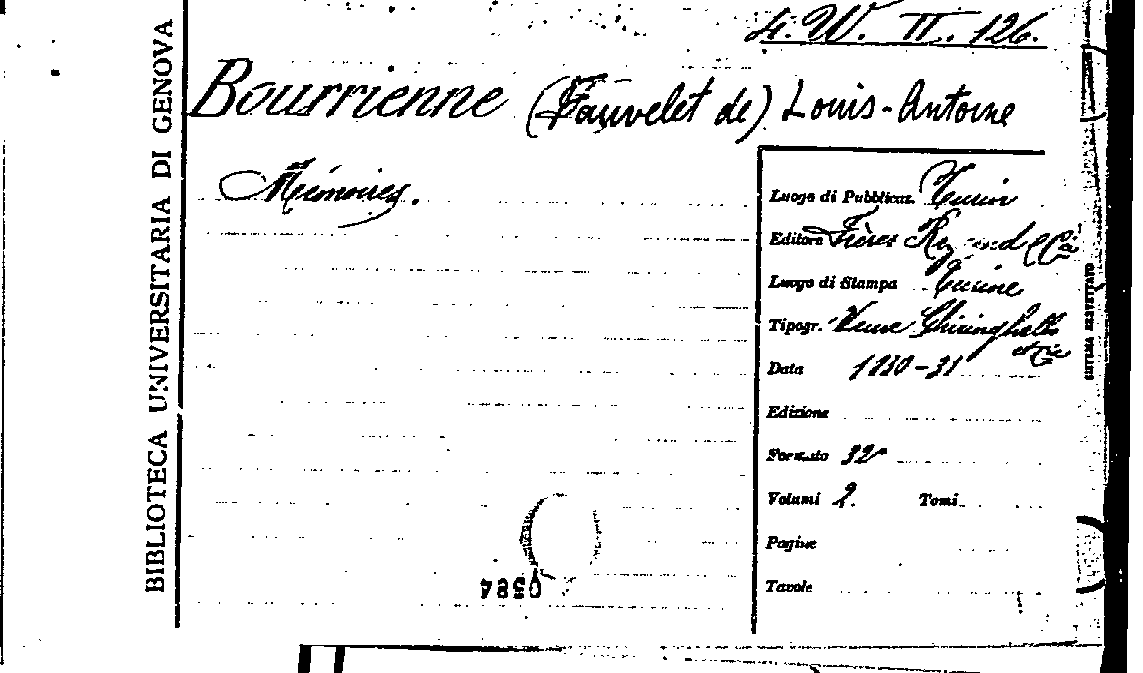 4. W. II. 126.
BIBLIOTECA UNIVERSITARIA DI GENOVA
Bourrienne (Fauvelet de) Louis-Antoine
Mémoires.
Luogo di Pubblicaz. Turin
Editore Frères Reycend e Ci
Luogo di Stampa Turin
Tipogr. Veuve Ghiringhello et Cie
Data 1830-31
Edizione
Formato 32°
Volumi 9.
Tomi
Pagine
Tavole
0584
SISTEMA BREVETTATO